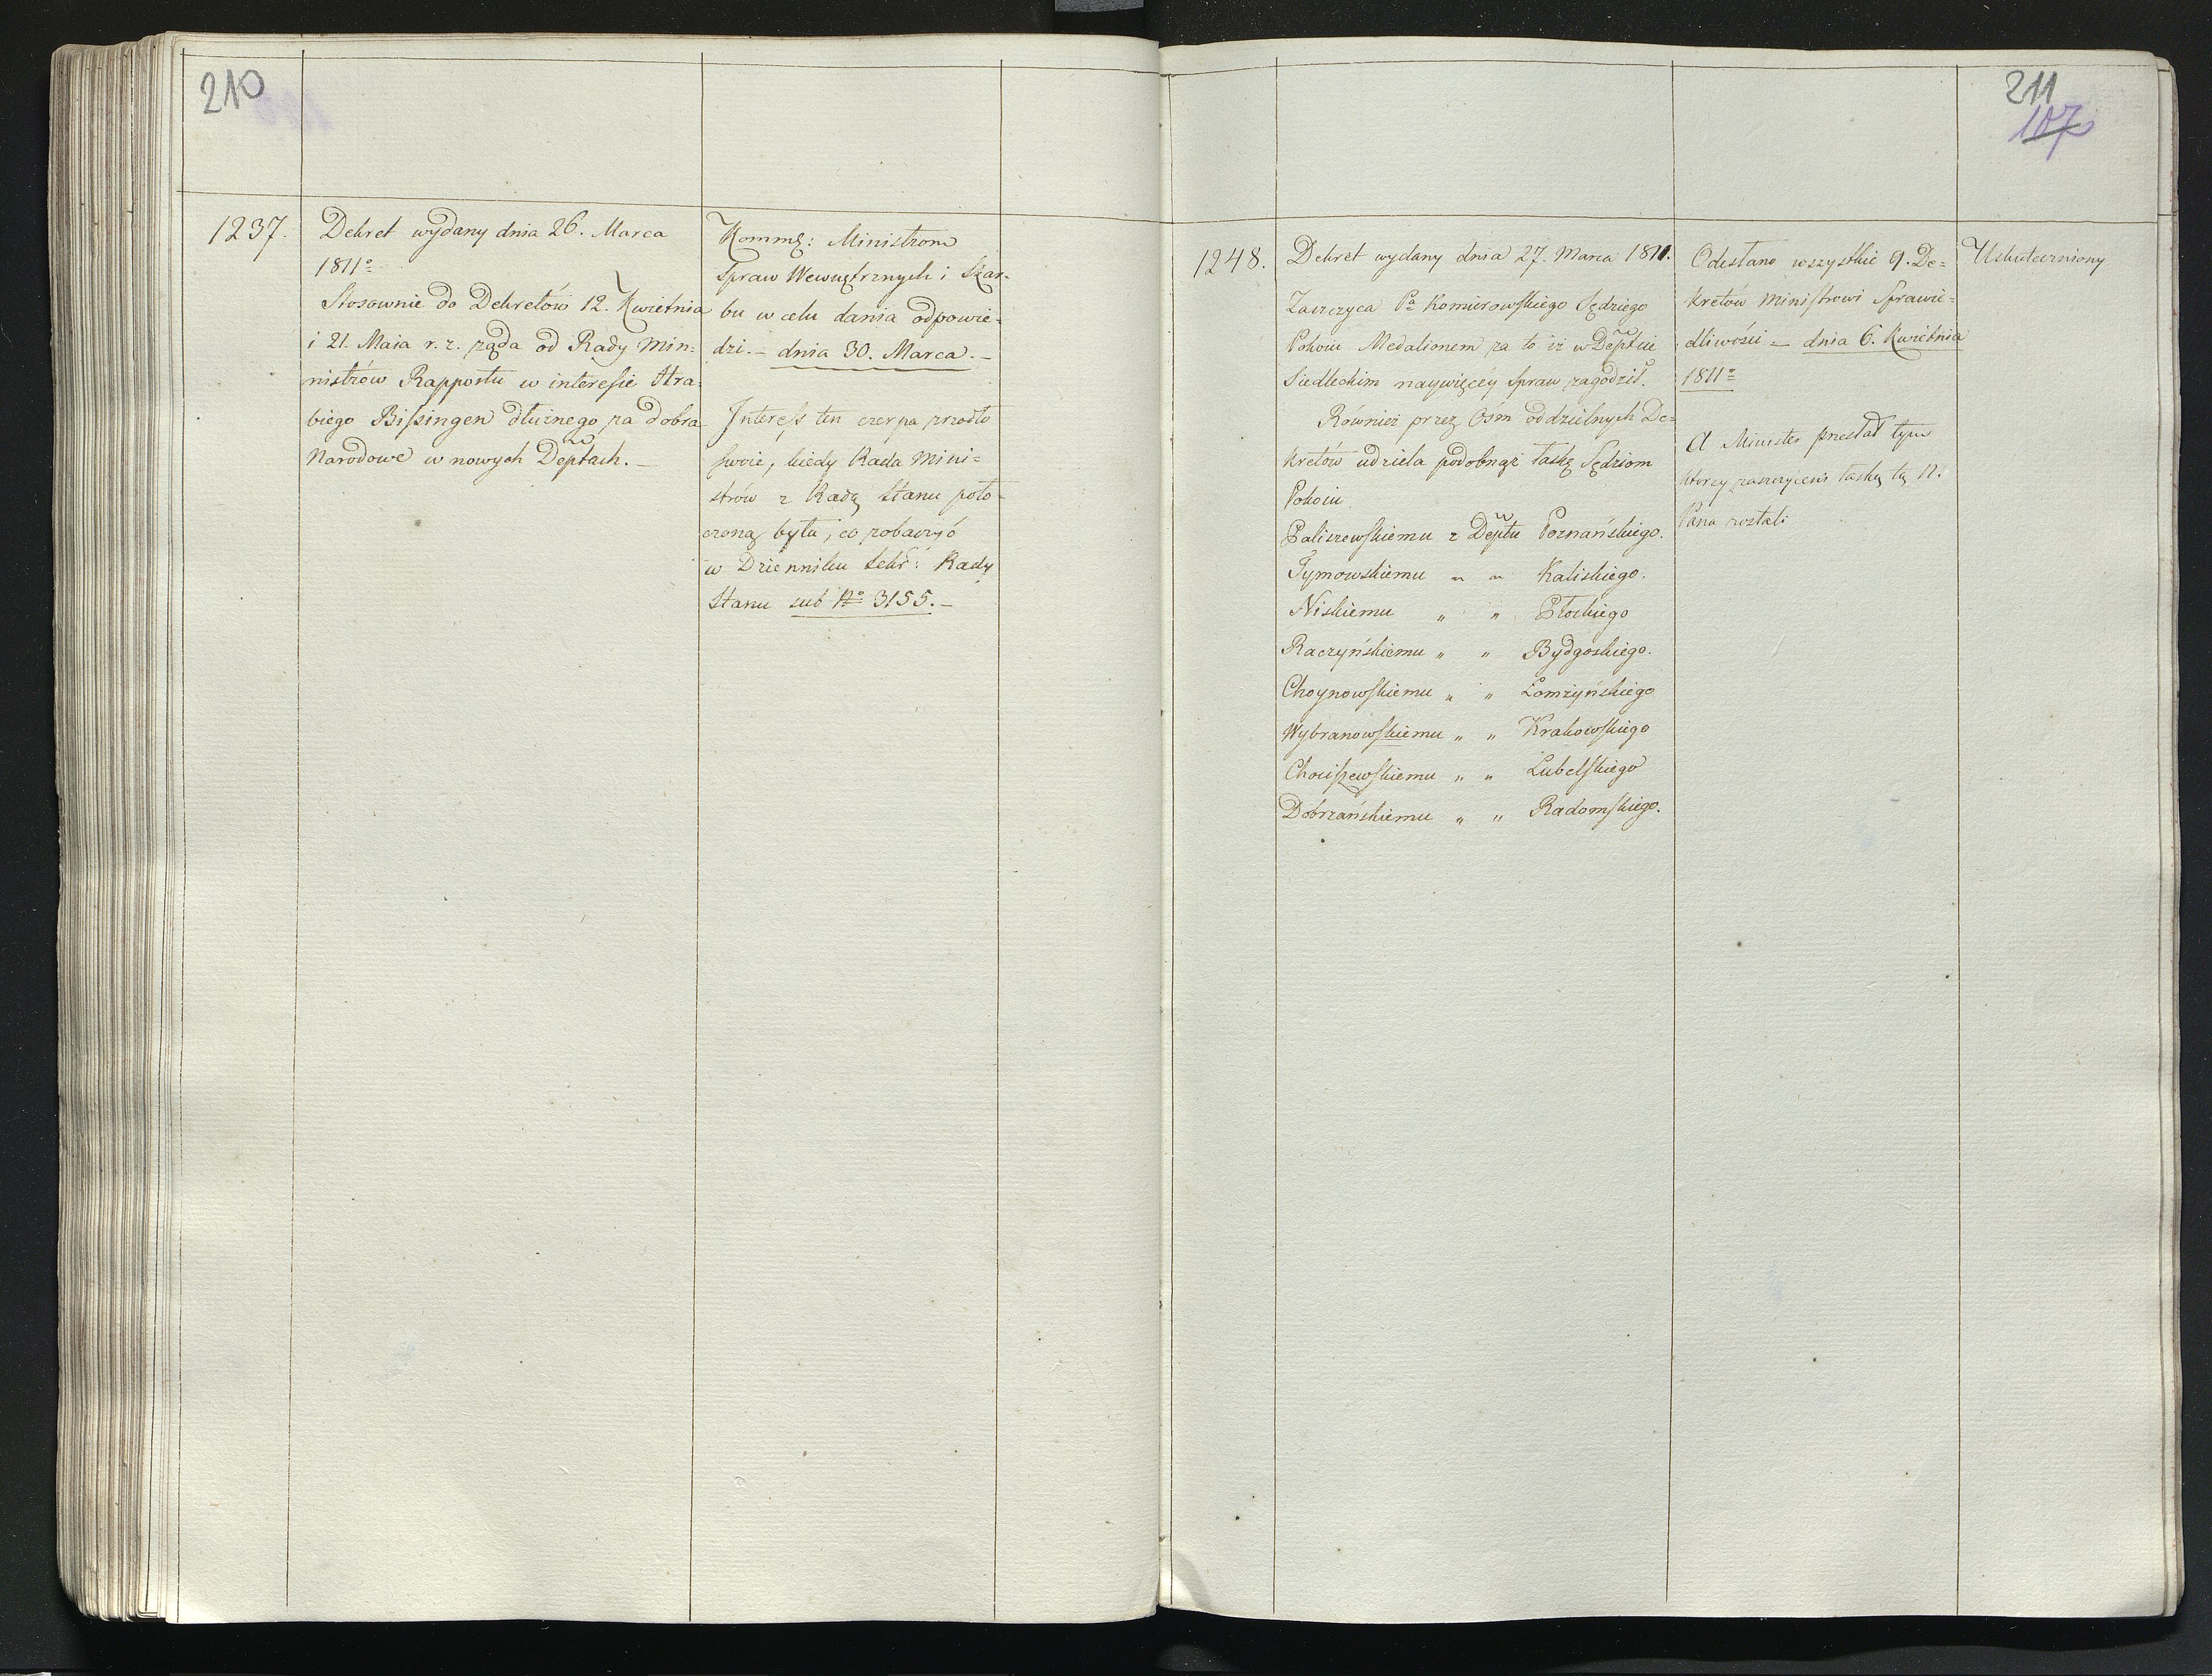 210
1237.
Dekret wydany dnia 26. Marca
1811o
Stosownie do Dekretów 12. Kwietnia
i 21. Maia r. z. rząda od Rady Min=
nistrów Rapportu w interesie Hra=
biego Bissingen dłużnego za dobra
Narodowe w nowych Deptach. –
Kommg: Ministrom
Spraw Wewnętrznych i Skar=
bu w celu dania odpowie=
dzi. – dnia 30. Marca. –
Interess ten czerpa zrzodło
swoie, kiedy Rada Mini=
strów z Radą Stanu poło=
czoną była, co zobaczyć
w Dzienniku Sekr: Rady
Stanu sub No 3155. –
211
107
1248.
Dekret wydany dnia 27. Marca 1811.
Zaszczyca Pa Komierowskiego Sędziego
Pokoiu Medalionem za to iż w Deptcie
Siedleckim naywięcéy Spraw zagodził.
Również przez Ośm oddzielnych De=
kretów udziela podobnąż łaskę Sędziom
Pokoiu
Paliszewskiemu z Deptu Poznańskiego.
Tymowskiemu " " Kaliskiego.
Niskiemu " " Płockiego
Raczyńskiemu " " Bydgoskiego.
Choynowskiemu " " Łomżyńskiego
Wybranowskiemu " " Krakowskiego
Chociszewskiemu " " Lubelskiego
Dobrzańskiemu " " Radomskiego.
Odesłano wszystkie 9. De=
kretów Ministrowi Sprawie=
dliwości – dnia 6. Kwietnia
1811o
A Minister przesłał tym
którzy zaszczyceni łaską tą N.
Pana zostali
Uskuteczniony